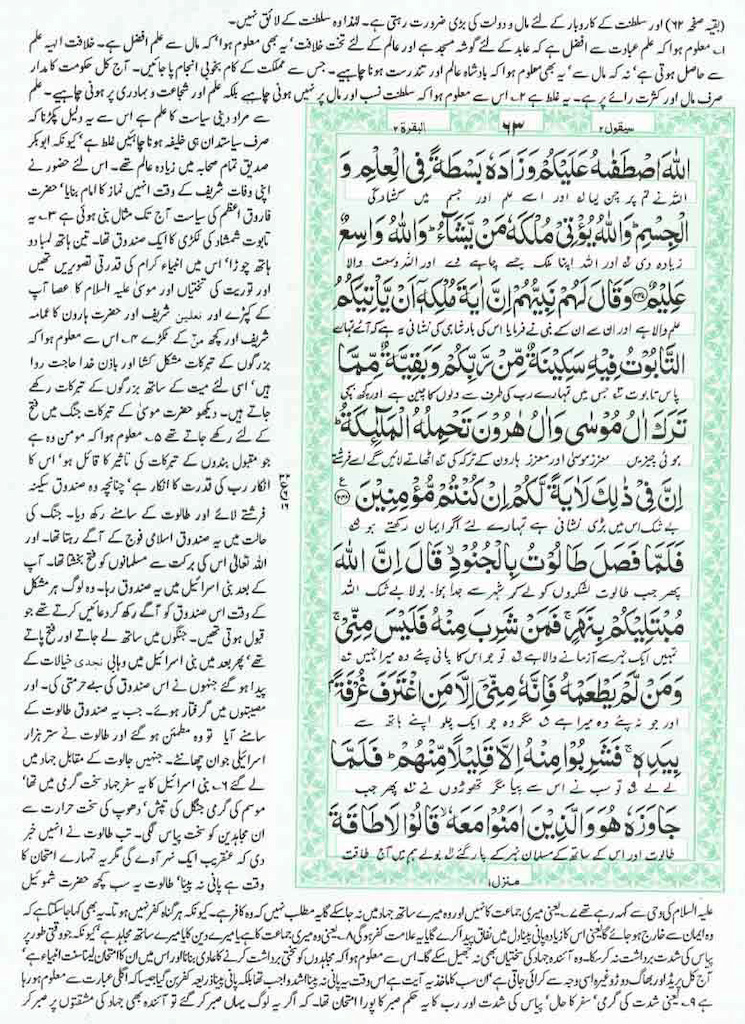 (بقیہ صفحہ ۶۲) اور سلطنت کے کاروبار کے لئے مال و دولت کی بڑی ضرورت رہتی ہے۔ لہٰذا وہ سلطنت کے لائق نہیں۔
۱۔ معلوم ہوا کہ علم عبادت سے افضل ہے کہ عابد کے لئے گوشہ مسجد ہے اور عالم کے لئے تخت خلافت' یہ بھی معلوم ہوا' کہ مال سے علم افضل ہے۔ خلافت الہیہ علم
سے حاصل ہوتی ہے' نہ کہ مال سے' یہ بھی معلوم ہوا کہ بادشاہ عالم اور تندرست ہونا چاہیے۔ جس سے مملکت کے کام بخوبی انجام پا جائیں۔ آج کل حکومت کا مدار
صرف مال اور کثرت رائے پر ہے۔ یہ غلط ہے ۲۔ اس سے معلوم ہوا کہ سلطنت نسب اور مال پر نہیں ہونی چاہیے بلکہ علم اور شجاعت و بہادری پر ہونی چاہیے۔ علم
سیقول ۲ ۶۳ البقرۃ ۲
اللّٰهَ اصْطَفٰىهُ عَلَيْكُمْ وَزَادَهٗ بَسْطَةً فِي الْعِلْمِ وَ
اللہ نے تم پر چن لیا اور اسے علم اور جسم میں کشادگی
الْجِسْمِ ؕ وَاللّٰهُ يُؤْتِيْ مُلْكَهٗ مَنْ يَّشَآءُ ؕ وَاللّٰهُ وَاسِعٌ
زیادہ دی اور اللہ اپنا ملک جسے چاہے دے اور اللہ وسعت والا
عَلِيْمٌ ﴿۲۴۷﴾ وَقَالَ لَهُمْ نَبِيُّهُمْ اِنَّ اٰيَةَ مُلْكِهٖۤ اَنْ يَّاْتِيَكُمُ
علم والا ہے اور ان سے ان کے نبی نے فرمایا اس کی بادشاہی کی نشانی یہ ہے کہ آئے تمہارے
التَّابُوْتُ فِيْهِ سَكِيْنَةٌ مِّنْ رَّبِّكُمْ وَبَقِيَّةٌ مِّمَّا
پاس تابوت جس میں تمہارے رب کی طرف سے دلوں کا چین ہے اور کچھ بچی
تَرَكَ اٰلُ مُوْسٰى وَاٰلُ هٰرُوْنَ تَحْمِلُهُ الْمَلٰٓئِكَةُ ؕ
ہوئی چیزیں معزز موسٰی اور معزز ہارون کے ترکہ کی اٹھاتے لائیں گے اسے فرشتے
اِنَّ فِيْ ذٰلِكَ لَاٰيَةً لَّكُمْ اِنْ كُنْتُمْ مُّؤْمِنِيْنَ ﴿۲۴۸﴾
بے شک اس میں بڑی نشانی ہے تمہارے لئے اگر ایمان رکھتے ہو
فَلَمَّا فَصَلَ طَالُوْتُ بِالْجُنُوْدِ ۙ قَالَ اِنَّ اللّٰهَ
پھر جب طالوت لشکروں کو لے کر شہر سے جدا ہوا۔ بولا بے شک اللہ
مُبْتَلِيْكُمْ بِنَهَرٍ ۚ فَمَنْ شَرِبَ مِنْهُ فَلَيْسَ مِنِّيْ ۚ
تمہیں ایک نہر سے آزمانے والا ہے تو جو اس کا پانی پئے وہ میرا نہیں
وَمَنْ لَّمْ يَطْعَمْهُ فَاِنَّهٗ مِنِّيْۤ اِلَّا مَنِ اغْتَرَفَ غُرْفَةً
اور جو نہ پئے وہ میرا ہے مگر وہ جو ایک چلو اپنے ہاتھ سے
بِيَدِهٖ ۚ فَشَرِبُوْا مِنْهُ اِلَّا قَلِيْلًا مِّنْهُمْ ؕ فَلَمَّا
لے لے تو سب نے اس سے پیا مگر تھوڑوں نے پھر جب
جَاوَزَهٗ هُوَ وَالَّذِيْنَ اٰمَنُوْا مَعَهٗ ۙ قَالُوْا لَا طَاقَةَ
طالوت اور اس کے ساتھ کے مسلمان نہر کے پار گئے بولے ہم میں آج طاقت
منزل ۱
سے مراد دینی سیاست کا علم ہے اس سے یہ دلیل پکڑنا کہ
صرف سیاستدان ہی خلیفہ ہونا چاہئیں غلط ہے' کیونکہ ابوبکر
صدیق تمام صحابہ میں زیادہ عالم تھے۔ اس لئے حضور نے
اپنی وفات شریف کے وقت انہیں نماز کا امام بنایا' حضرت
فاروق اعظم کی سیاست آج تک مثال بنی ہوئی ہے ۳۔ یہ
تابوت شمشاد کی لکڑی کا ایک صندوق تھا۔ تین ہاتھ لمبا دو
ہاتھ چوڑا' اس میں انبیاء کرام کی قدرتی تصویریں تھیں
اور توریت کی تختیاں اور موسٰی علیہ السلام کا عصا آپ
کے کپڑے اور نعلین شریف اور حضرت ہارون کا عمامہ
شریف اور کچھ منّ کے ٹکڑے ۴۔ اس سے معلوم ہوا کہ
بزرگوں کے تبرکات مشکل کشا اور باذن خدا حاجت روا
ہیں' اسی لئے میت کے ساتھ بزرگوں کے تبرکات رکھے
جاتے ہیں۔ دیکھو حضرت موسٰی کے تبرکات جنگ میں فتح
کے لئے رکھے جاتے تھے ۵۔ معلوم ہوا کہ مومن وہ ہے
جو مقبول بندوں کے تبرکات کی تاثیر کا قائل ہو' اس کا
انکار رب کی قدرت کا انکار ہے' چنانچہ وہ صندوق سکینہ
فرشتے لائے اور طالوت کے سامنے رکھ دیا۔ جنگ کی
حالت میں یہ صندوق اسلامی فوج کے آگے رہتا تھا۔ اور
اللہ تعالٰی اس کی برکت سے مسلمانوں کو فتح بخشتا تھا۔ آپ
کے بعد بنی اسرائیل میں یہ صندوق رہا۔ وہ لوگ ہر مشکل
کے وقت اس صندوق کو آگے رکھ کر دعائیں کرتے تھے جو
قبول ہوتی تھیں۔ جنگوں میں ساتھ لے جاتے اور فتح پاتے
تھے' پھر بعد میں بنی اسرائیل میں وہابی نجدی خیالات کے
پیدا ہو گئے جنہوں نے اس صندوق کی بے حرمتی کی۔ اور
مصیبتوں میں گرفتار ہوئے۔ جب یہ صندوق طالوت کے
سامنے آیا تو وہ مطمئن ہو گئے اور طالوت نے ستر ہزار
اسرائیلی جوان چھانٹے۔ جنہیں جالوت کے مقابل جہاد میں
لے گئے ۶۔ بنی اسرائیل کا یہ سفر جہاد سخت گرمی میں تھا'
موسم کی گرمی جنگل کی تپش' دھوپ کی سخت حرارت سے
ان مجاہدین کو سخت پیاس لگی۔ تب طالوت نے انہیں خبر
دی کہ عنقریب ایک نہر آوے گی مگر یہ تمہارے امتحان کا
وقت ہے پانی نہ پینا' طالوت یہ سب کچھ حضرت شموئیل
علیہ السلام کی وحی سے کہہ رہے تھے ۷۔ یعنی میری جماعت کا نہیں اور وہ میرے ساتھ جہاد میں نہ جا سکے گا یہ مطلب نہیں کہ وہ کافر ہے۔ کیونکہ ہر گناہ کفر نہیں ہوتا۔ یہ بھی کہا جا سکتا ہے کہ
وہ ایمان سے خارج ہو جائے گا یعنی اس کا زیادہ پانی پینا دل میں نفاق پیدا کرے گا یا یہ علامت کفر ہو گی ۸۔ یعنی وہ میری جماعت کا ہے یا میرے دین کا یا میرے ساتھ مجاہد ہے' کیونکہ جو وقتی طور پر
پیاس کی شدت برداشت نہ کر سکا۔ وہ آئندہ جہاد کی سختیاں بھی نہ جھیل سکے گا۔ اس سے معلوم ہوا کہ مجاہدوں کو سختی برداشت کرنے کا عادی بنانا اور اس میں ان کا امتحان لینا سنت انبیاء ہے'
آج کل پریڈ اور بھاگ دوڑ وغیرہ اسی وجہ سے کرائی جاتی ہے' ان سب کا ماخذ یہ آیت ہے اس وقت یہ پانی نہ پینا اشد واجب تھا بلکہ پانی پینا ذریعہ کفر بن گیا جیسا کہ اگلی عبارت سے معلوم ہو رہا
ہے ۹۔ یعنی شدت کی گرمی' سفر کا حال' پیاس کی شدت اور رب کا یہ حکم صبر کا پورا امتحان تھا۔ کہ اگر یہ لوگ یہاں صبر کر گئے تو آئندہ بھی جہاد کی مشقتوں پر صبر کر